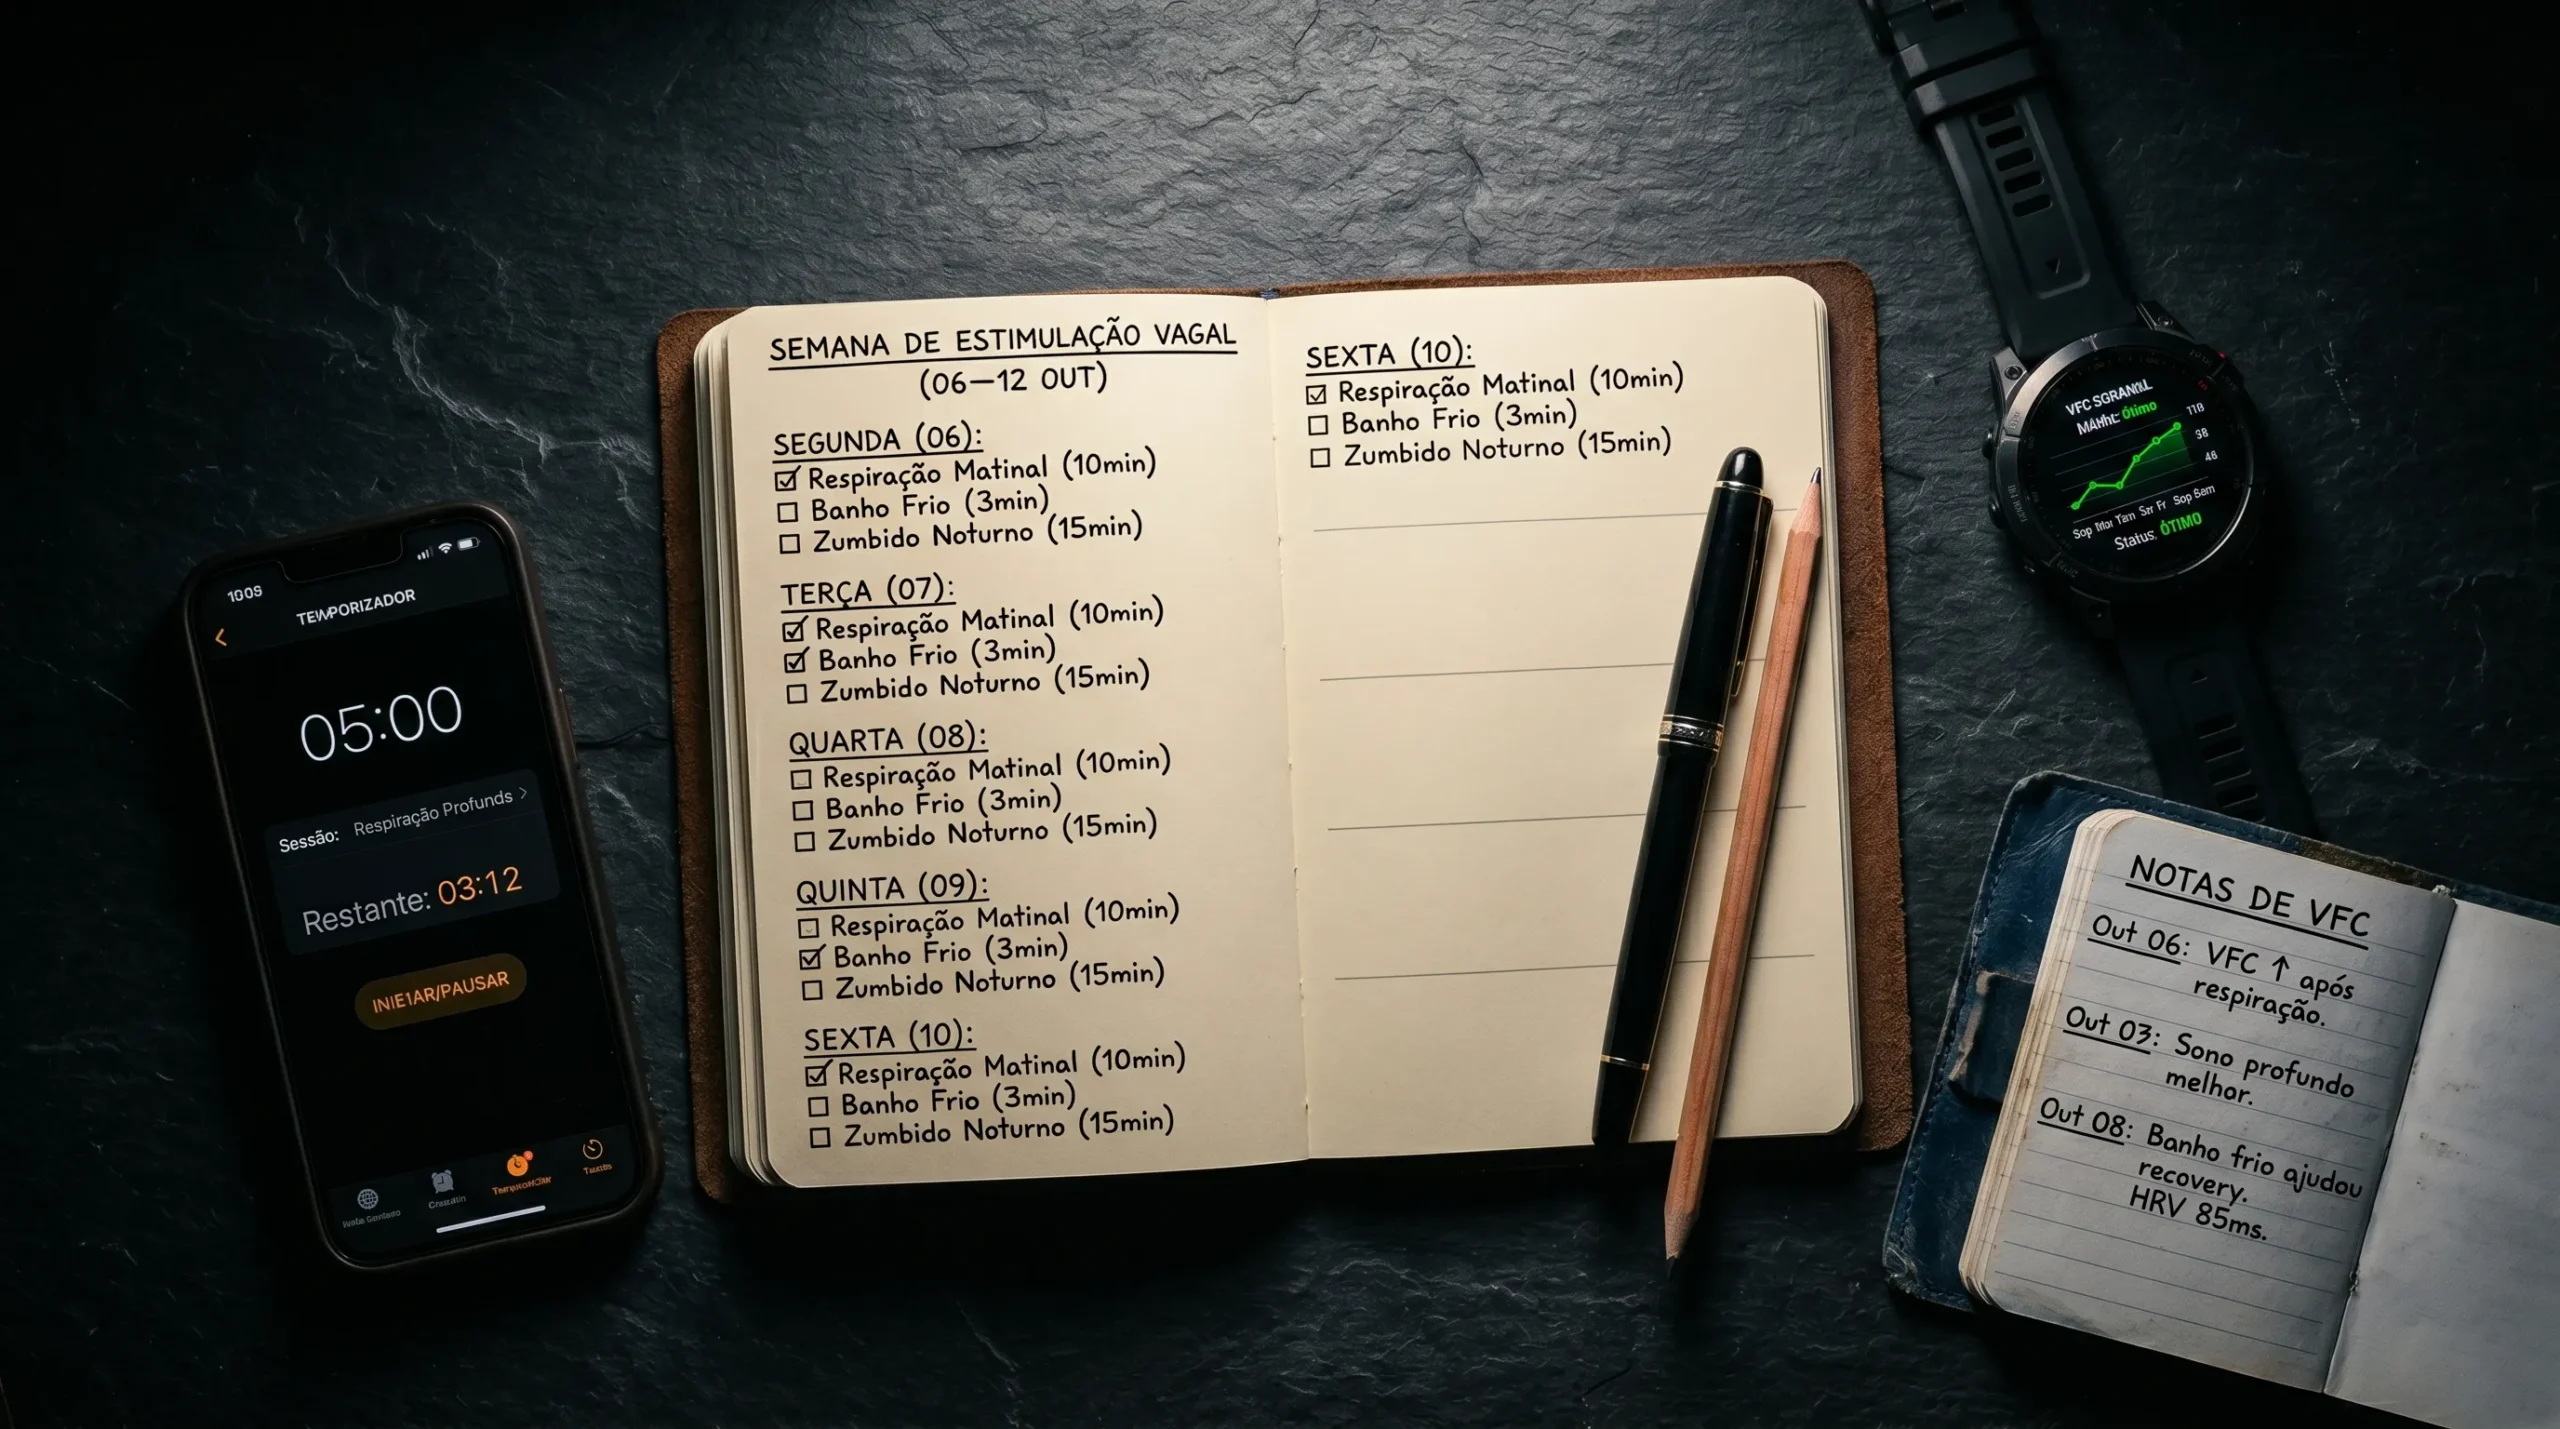 1009
TEMPORIZADOR
05:00
Sessão: Respiração Profunds >
Restante: 03:12
SEMANA DE ESTIMULAÇÃO VAGAL
(06—12 OUT)
SEGUNDA (06):
☑ Respiração Matinal (10min)
☐ Banho Frio (3min)
☐ Zumbido Noturno (15min)
TERÇA (07):
☑ Respiração Matinal (10min)
☑ Banho Frio (3min)
☐ Zumbido Noturno (15min)
QUARTA (08):
☐ Respiração Matinal (10min)
☐ Banho Frio (3min)
☐ Zumbido Noturno (15min)
QUINTA (09):
☐ Respiração Matinal (10min)
☑ Banho Frio (3min)
☐ Zumbido Noturno (15min)
SEXTA (10):
☑ Respiração Matinal (10min)
☐ Banho Frio (3min)
☐ Zumbido Noturno (15min)
SEXTA (10):
☑ Respiração Matinal (10min)
☐ Banho Frio (3min)
☐ Zumbido Noturno (15min)
VFC
Ótimo
Status, ÓTIMO
NOTAS DE VFC
Out 06: VFC ↑ após
respiração.
Out 03: Sono profundo
melhor.
Out 08: Banho frio ajudou
recovery.
HRV 85ms.